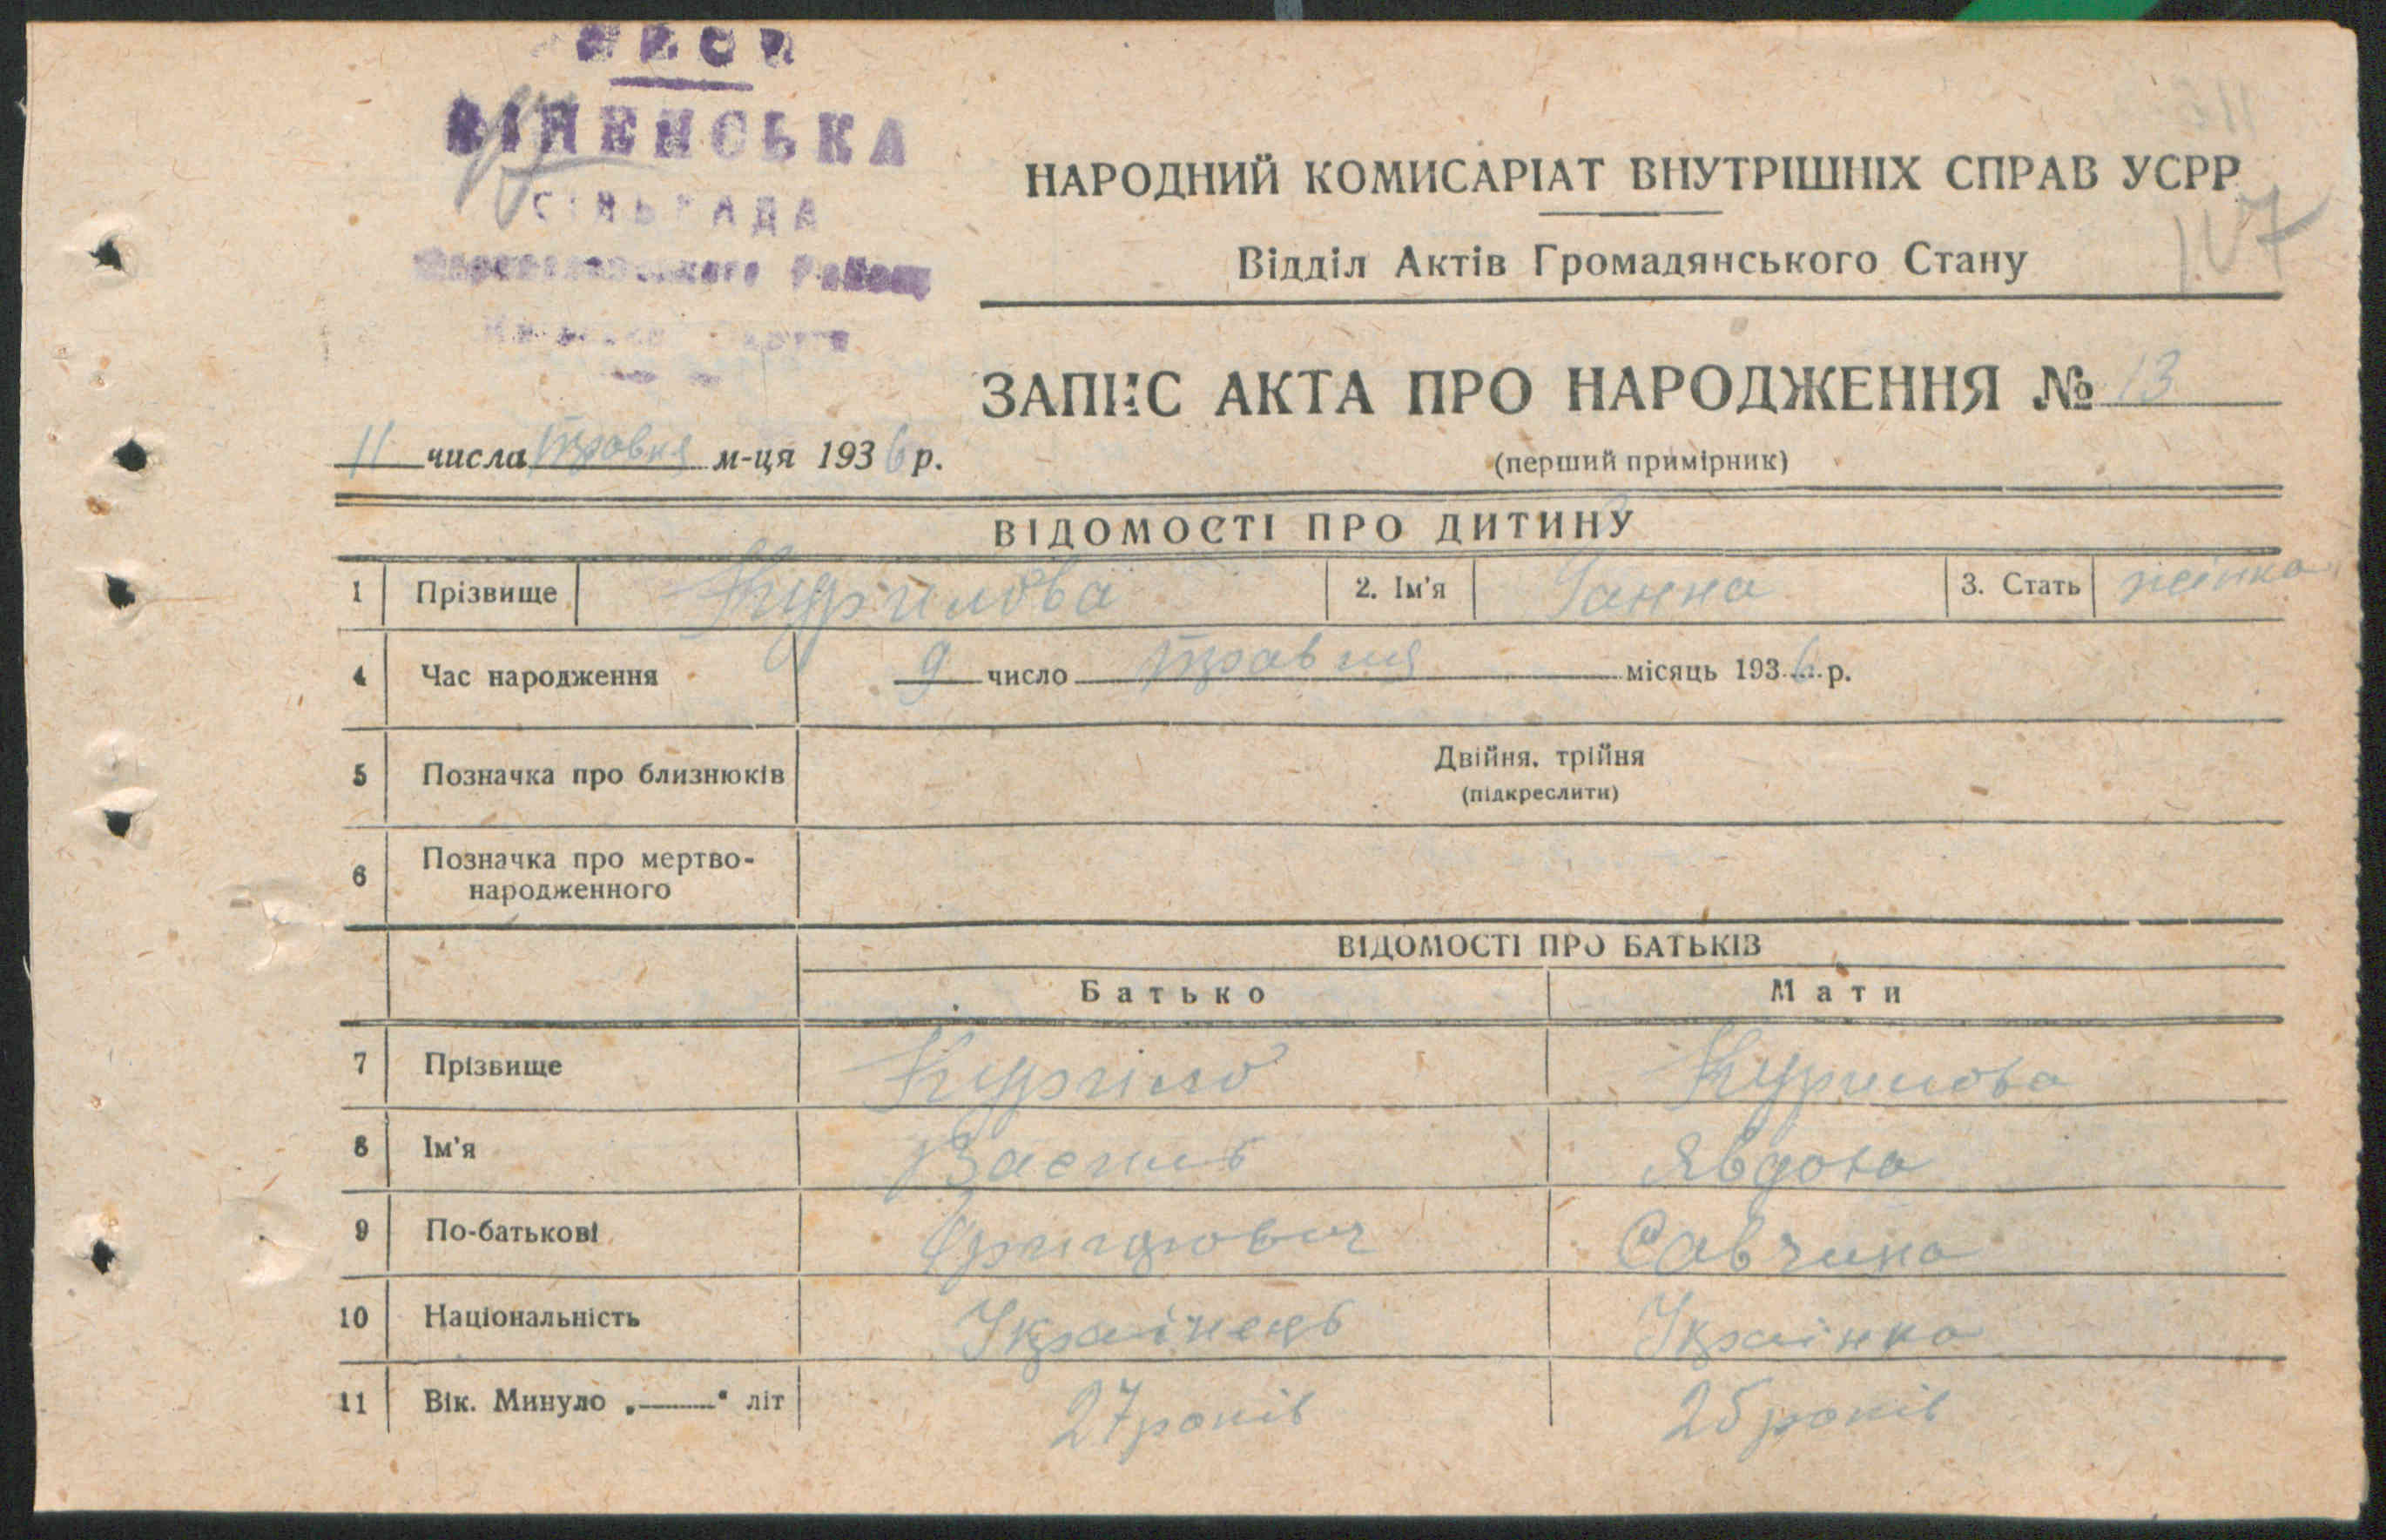 УССР
ВІНЕНСЬКА
СІЛЬРАДА
Району
НАРОДНИЙ КОМИСАРІАТ ВНУТРІШНІХ СПРАВ УСРР
Відділ Актів Громадянського Стану
ЗАПИС АКТА ПРО НАРОДЖЕННЯ № 13
(перший примірник)
11 числа травня м-ця 1936 р.
ВІДОМОСТІ ПРО ДИТИНУ
1 Прізвище Курилова 2. Ім'я Ганна 3. Стать жінка
4 Час народження 9 число травня місяць 1936 р.
5 Позначка про близнюків Двійня, трійня
(підкреслити)
6 Позначка про мертво-
народженного
ВІДОМОСТІ ПРО БАТЬКІВ
Батько Мати
7 Прізвище Курило Курилова
8 Ім'я Василь Явдоха
9 По-батькові Савчина
10 Національність Українець Українка
11 Вік. Минуло „——“ літ 27 років 25 років